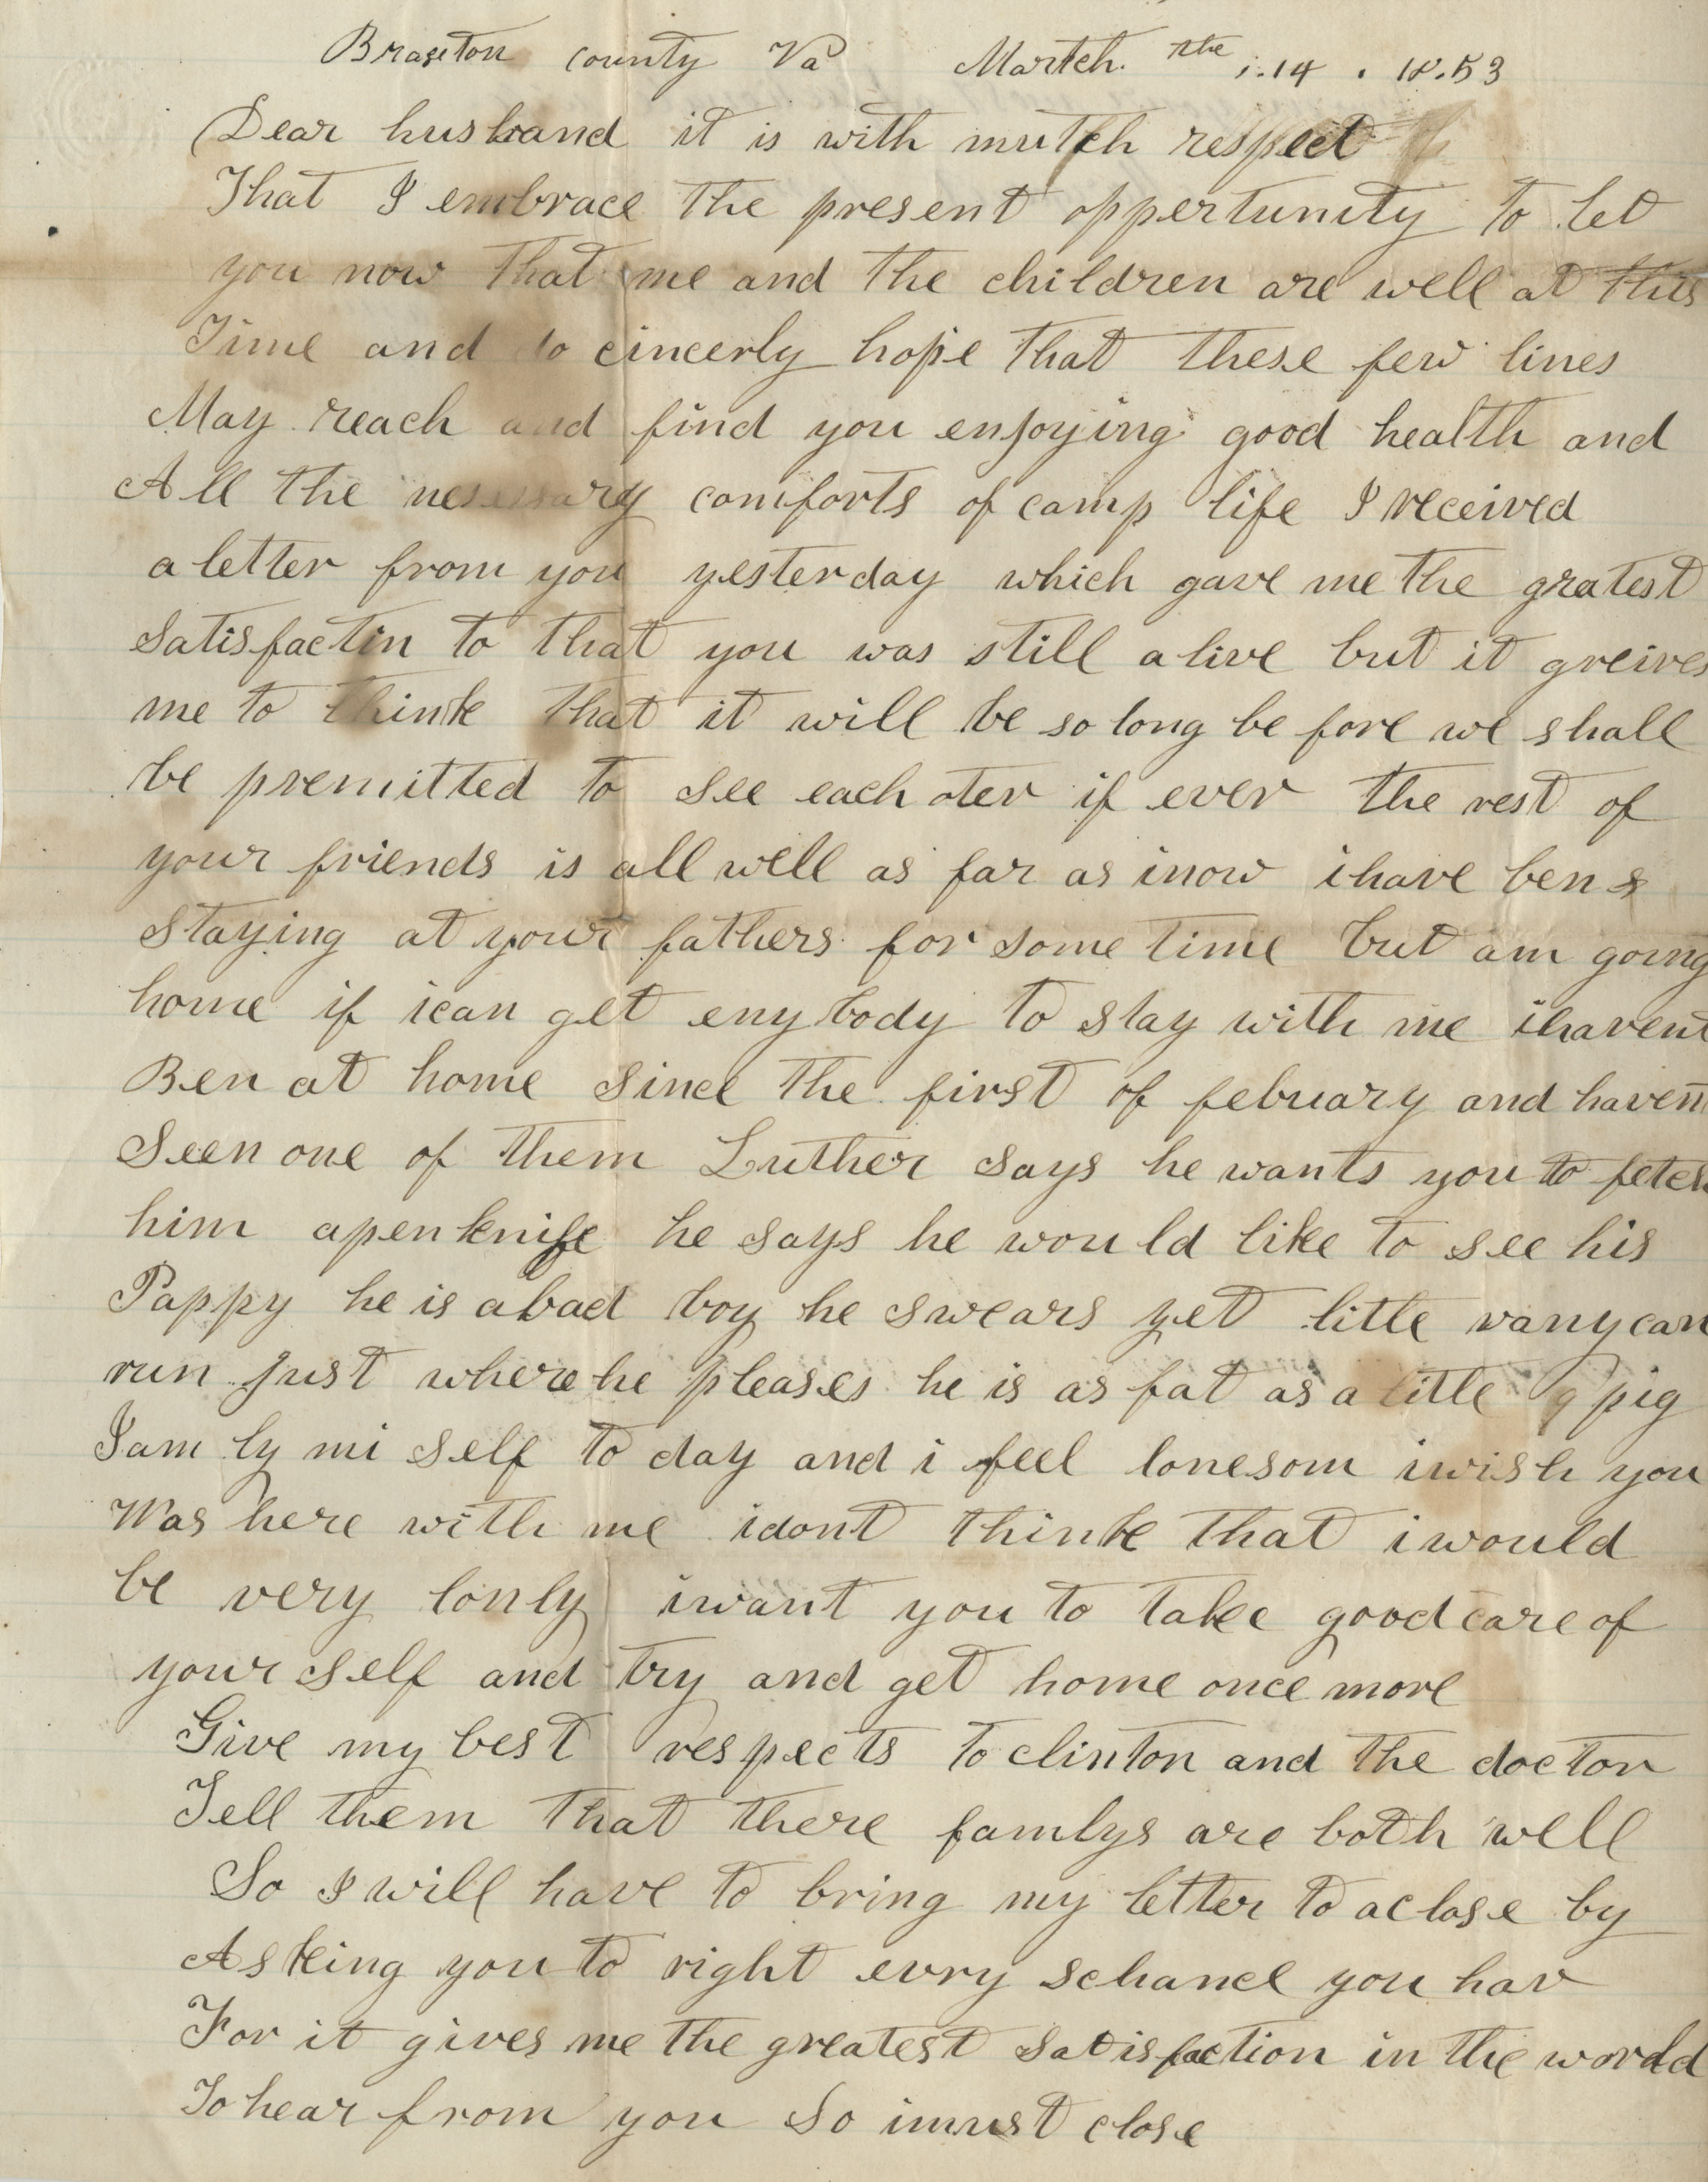 Braxton county Va Martch the 14. 18.53
Dear husband it is with mutch respect
That I embrace the present oppertunity to let
you now that me and the children are well at this
Time and do cincerly hope that these few lines
May reach and find you enjoying good health and
All the nesessary comforts of camp life I received
a letter from you yesterday which gave me the gratest
Satisfactin to that you was still alive but it greives
me to think that it will be so long be fore we shall
be premitted to see each oter if ever the rest of
your friends is all well as far as inow ihave ben s
staying at your fathers for some time but am going
home if ican get eny body to stay with me ihavent
Ben at home since the first of febuary and havent
Seen one of them Luther says he wants you to fetch
him apen knife he says he would like to see his
Pappy he is abad boy he swears yet little vany can
run just where he pleases he is as fat as a little pig
Iam by mi self to day and i feel lonesom iwish you
Was here with me idont think that iwould
be very lonly iwant you to take good care of
your self and try and get home once more
Give my best respects to clinton and the doctor
Tell them that there famlys are both well
So I will have to bring my letter to aclose by
Asking you to right evry schance you hav
For it gives me the greatest satisfaction in the world
To hear from you So imust close